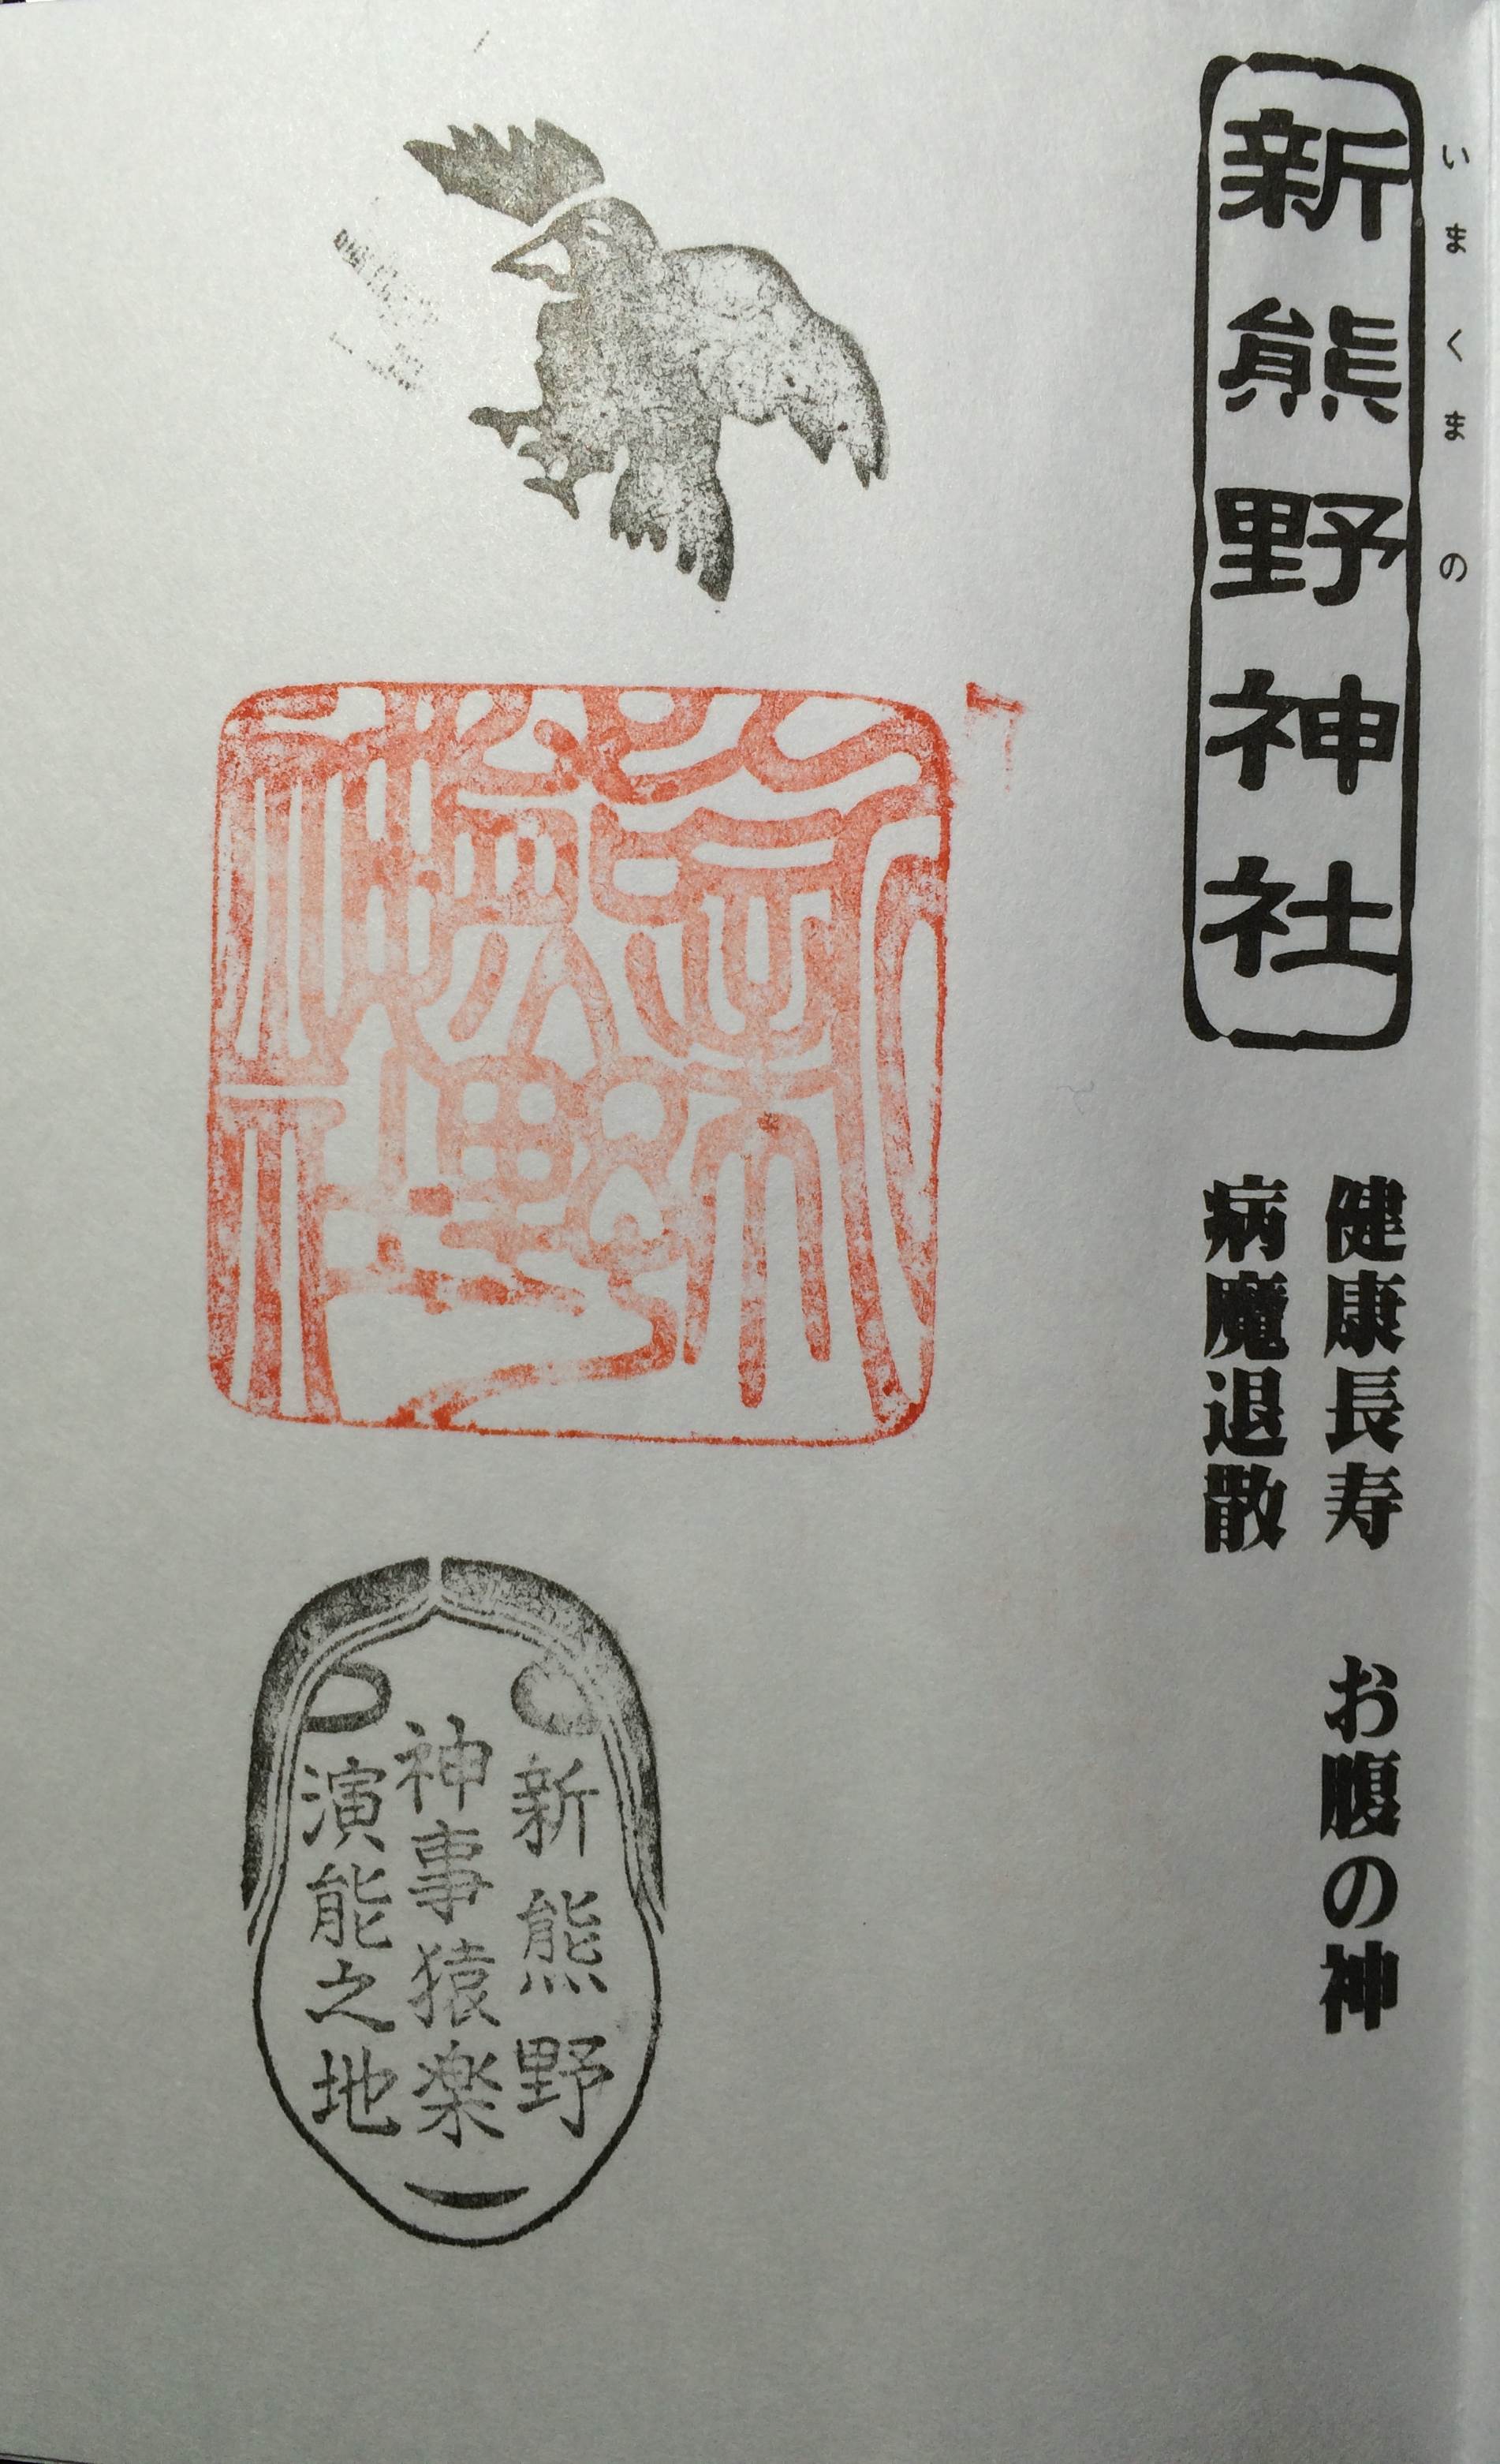 いまくまの
新熊野神社
健康長寿 お腹の神
病魔退散
新熊野
神事猿楽
演能之地